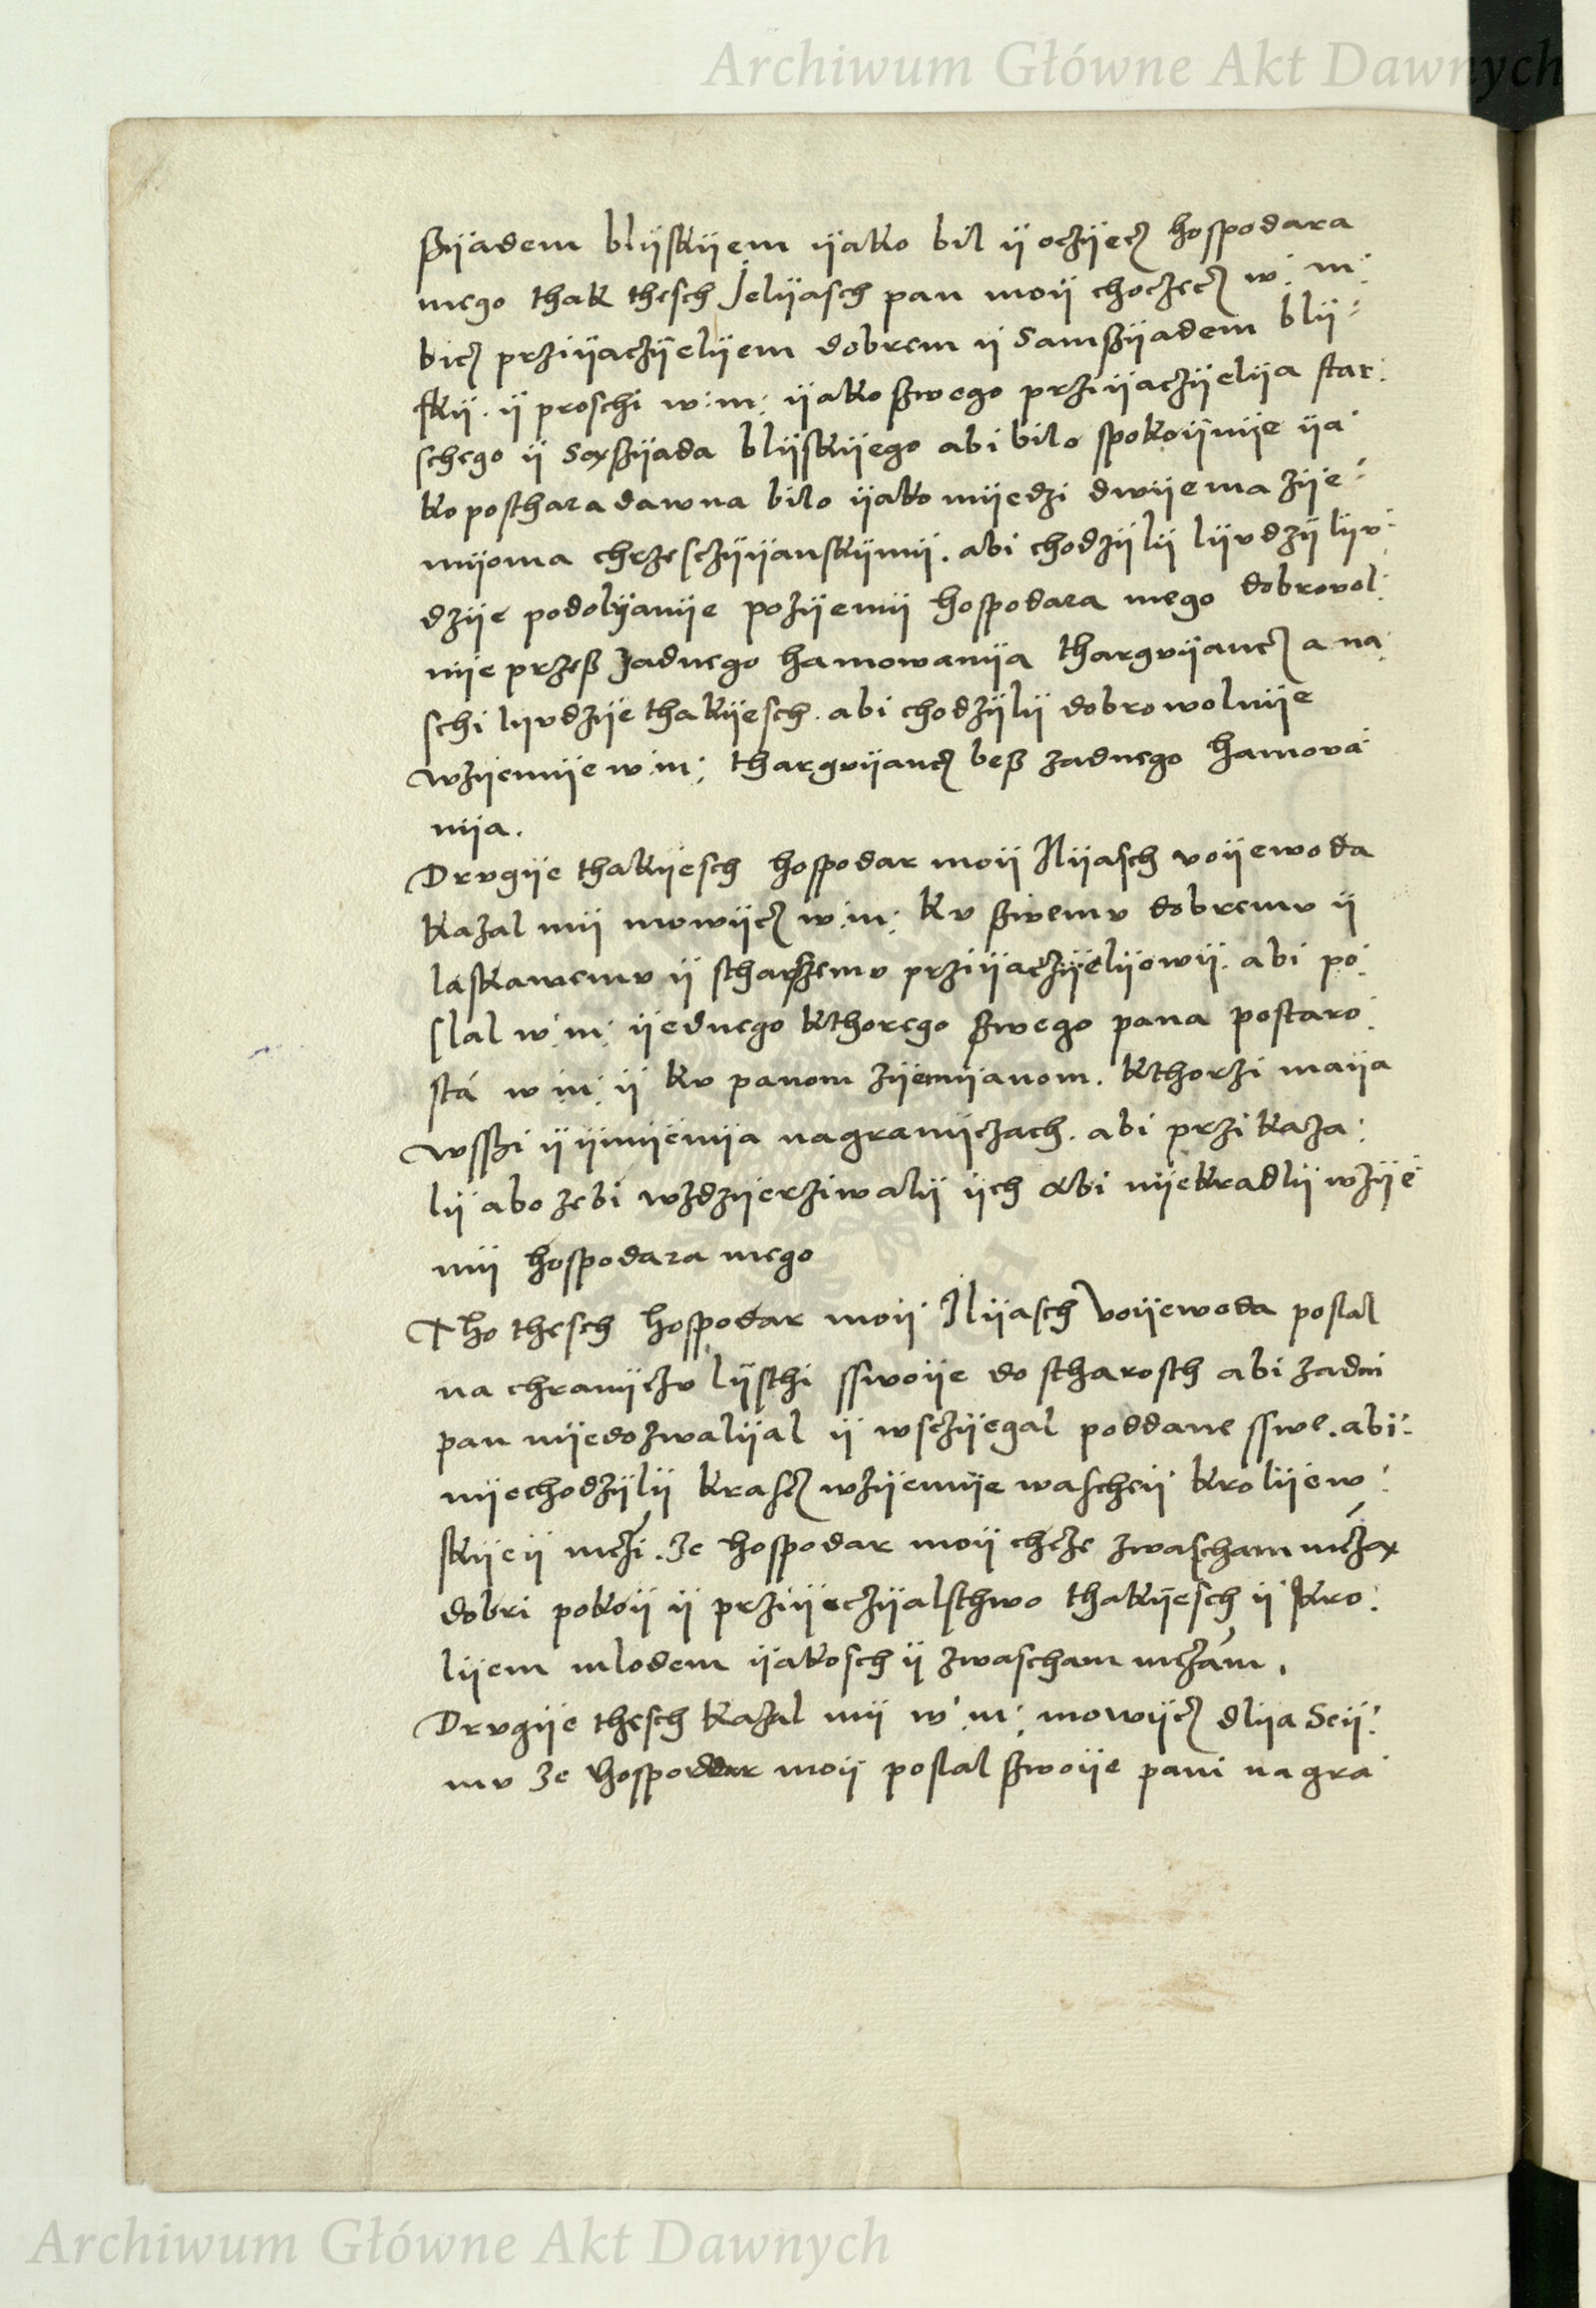 Archiwum Główne Akt Dawnych
ßijadem blijskijem ijako bil ij oczijecz hospodara
mego thak thesch Jelijasch pan moij choczecz w: m:
bicz prziijaczijelijem dobrem ij Samßijadem blij:
skij. ij proschi w:m: ijako ßwego prziijaczijelija star:
schego ij Sąßijada blijskijego abi bilo spokoijnije ija
ko posthara dawna bilo ijako mijedzi dwijema zije:
mijoma chrzesczijijanskijmij. abi chodzijlij lijvdzij lijv:
dzije podolijanije pozijemij hospodara mego dobrovol:
nije przeß zadnego hamowanija thargvijancz a na:
schi lijvdzije thakijesch. abi chodzijlij dobrowolnije
wzijemije w:m: thargvijancz beß zadnego hamova
nija.
Drvgije thakijesch hospodar moij Ilijasch voijewoda
kazal mij mowijcz w:m: kv ßwemv dobremv ij
laskawemv ij scharszemv prziijaczijelijowij. abi po:
slal w:m: ijednego kthorego ßwego pana postaro:
sta w:m: ij kv panom zijemijanom. kthorzi maija
wsßi ij ijmijenija nagranijczach. abi przikaza:
lij abo zebi wzdzijerziwalij ijch abi nijekradlij wzije
mij hospodara mego
Tho thesch hospodar moij Ilijasch voijewoda poslal
na chranijczv lijsthi sswoije do stharosth abi zadni
pan nijedozwalijal ij wsczijegal poddane sswe. abi:
nijechodzijlij krascz wzijemije wascheij krolijew:
skijeij mczi. ze hospodar moij chcze zwascham mczą
dobri pokoij ij prziijeczijalsthwo thakijesch ij kro:
lijem mlodem ijakosch ij zwascham mczam.
Drvgije thesch kazal mij w:m: mowijcz dlija Seij:
mv ze hospodar moij poslal ßwoije pani nagra
Archiwum Główne Akt Dawnych